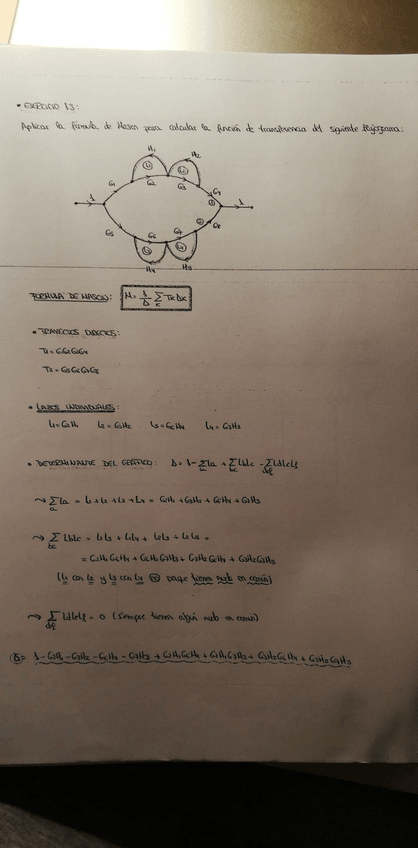 • EJERCICIO 13:
Aplicar la fórmula de Mason para calcular la función de transferencia del siguiente flujograma:
H1
H2
L1
L2
G1
G2
G3
G4
1
1
1
2
G5
G6
G7
G8
L3
L4
H4
H3
FÓRMULA DE MASON: M = 1/Δ Σ Tk Δk
• TRAYECTOS DIRECTOS:
T1 = G1G2G3G4
T2 = G5G6G7G8
• LAZOS INDIVIDUALES:
L1 = G2H1 L2 = G3H2 L3 = G6H4 L4 = G7H3
• DETERMINANTE DEL GRÁFICO: Δ = 1 - Σ La + Σ LbLc - Σ LdLeLf
↝ Σ La = L1 + L2 + L3 + L4 = G2H1 + G3H2 + G6H4 + G7H3
↝ Σ LbLc = L1L3 + L1L4 + L2L3 + L2L4 =
= G2H1G6H4 + G2H1G7H3 + G3H2G6H4 + G3H2G7H3
(L1 con L2 y L3 con L4 NO porque tienen nudo en común)
↝ Σ LdLeLf = 0 (siempre tienen algún nudo en común)
Δ = 1 - G2H1 - G3H2 - G6H4 - G7H3 + G2H1G6H4 + G2H1G7H3 + G3H2G6H4 + G3H2G7H3